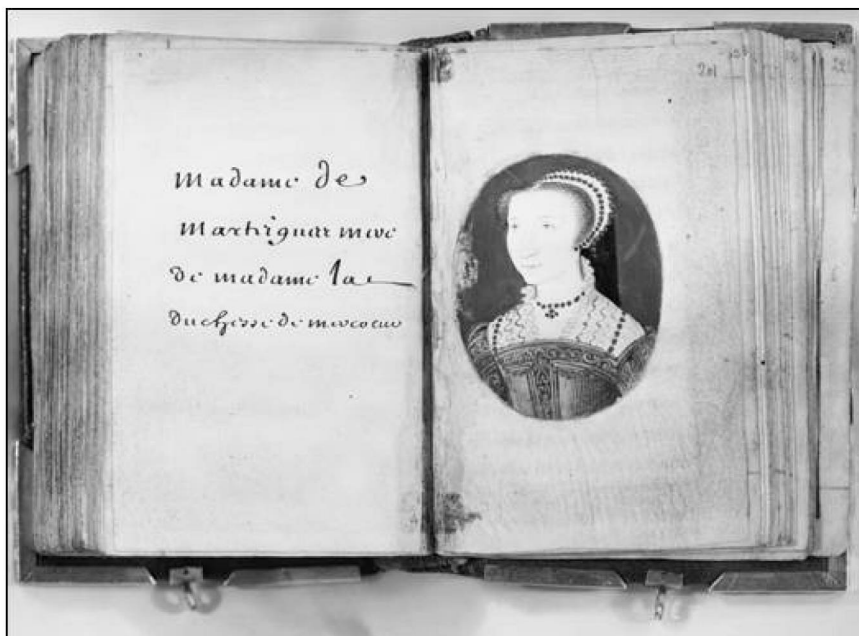 madame de
martigues mere
de madame la
duchesse de mercoeur
201